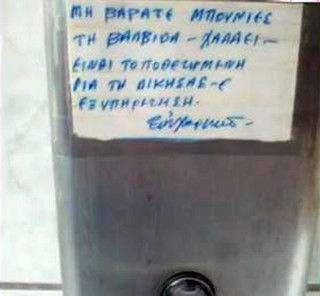 ΜΗ ΒΑΡΑΤΕ ΜΠΟΥΝΙΕΣ
ΤΗ ΒΑΛΒΙΔΑ - ΧΑΛΑΕΙ -
ΕΙΝΑΙ ΤΟΠΟΘΕΤΗΜΕΝΗ
ΓΙΑ ΤΗ ΔΙΚΗ ΣΑΣ -
ΕΞΥΠΗΡΕΤΗΣΗ.
Ευχαριστώ -